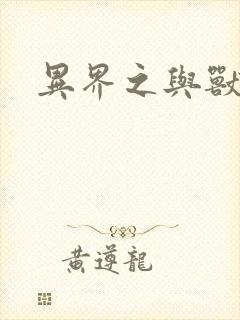 異界之與獸
黃遵龍